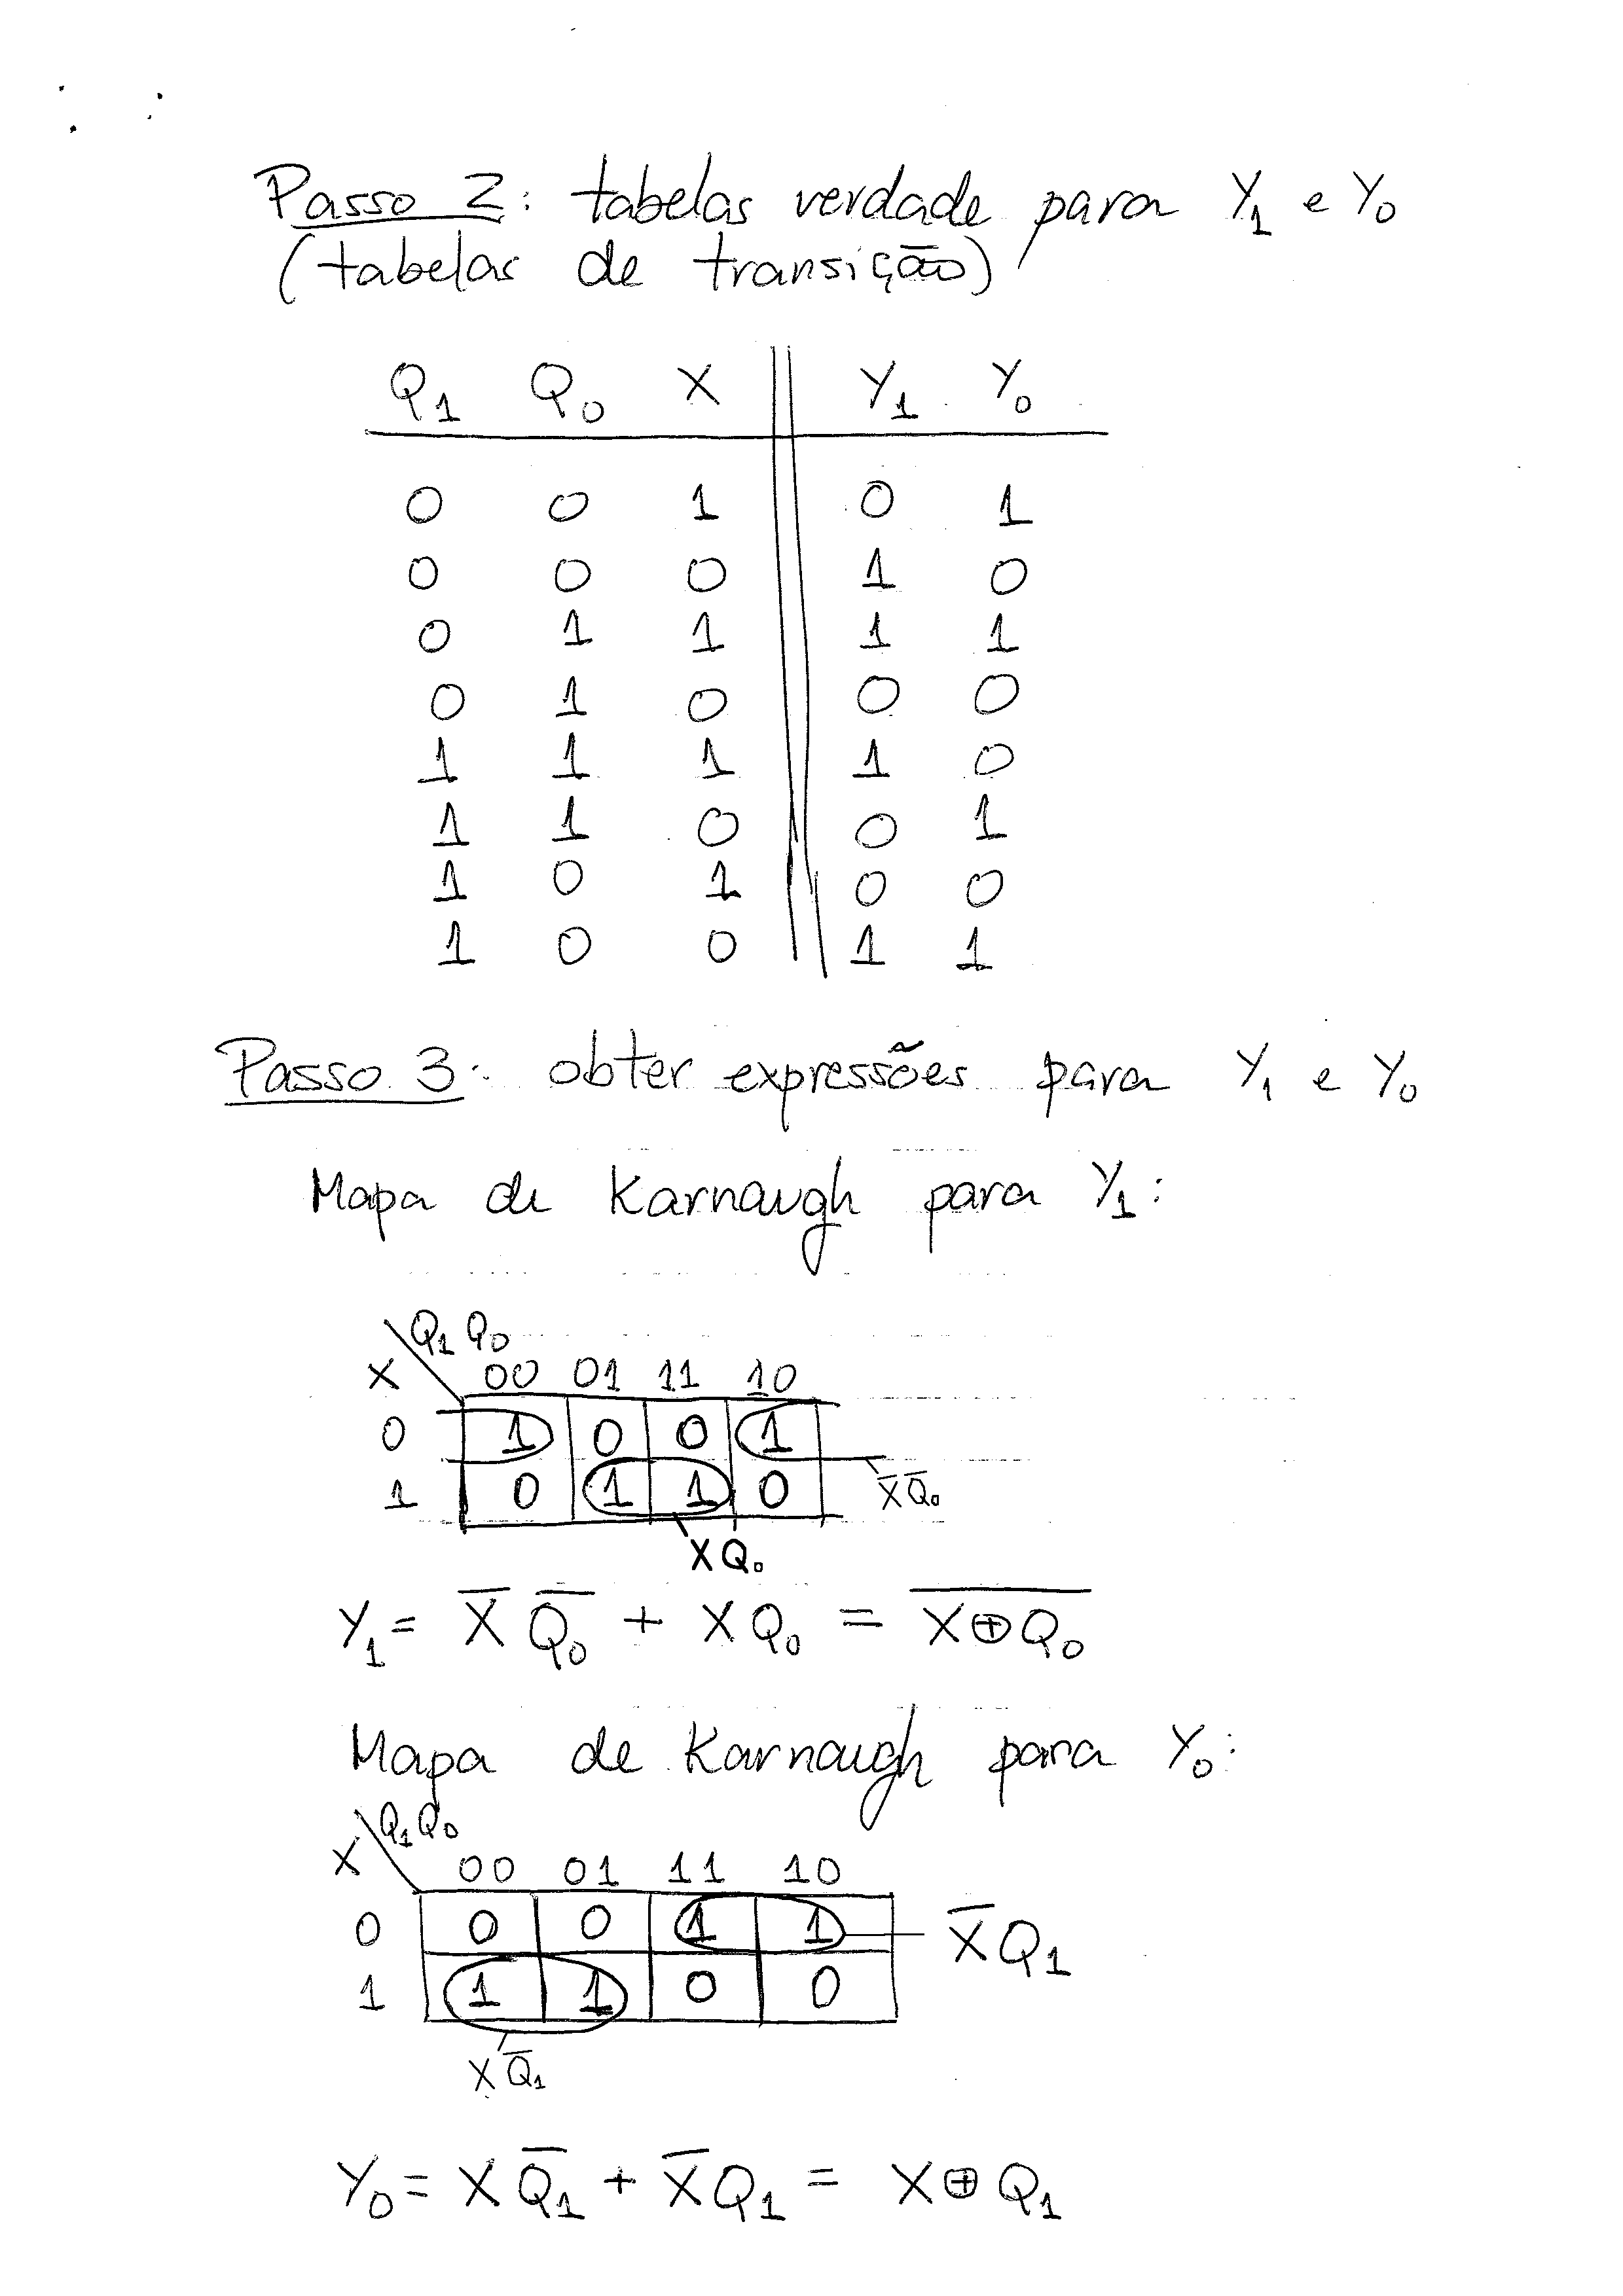 Passo 2: tabelas verdade para Y₁ e Y₀
(tabelas de transição)
Q₁ Q₀ X Y₁ Y₀
0 0 1 0 1
0 0 0 1 0
0 1 1 1 1
0 1 0 0 0
1 1 1 1 0
1 1 0 0 1
1 0 1 0 0
1 0 0 1 1
Passo 3: obter expressões para Y₁ e Y₀
Mapa de Karnaugh para Y₁:
Q₁ Q₀
X 00 01 11 10
0 1 0 0 1
1 0 1 1 0 X̅ Q̅₀
X Q₀
Y₁ = X̅ Q̅₀ + X Q₀ = \overline{X ⊕ Q₀}
Mapa de Karnaugh para Y₀:
Q₁ Q₀
X 00 01 11 10
0 0 0 1 1 X̅ Q₁
1 1 1 0 0
X Q̅₁
Y₀ = X Q̅₁ + X̅ Q₁ = X ⊕ Q₁